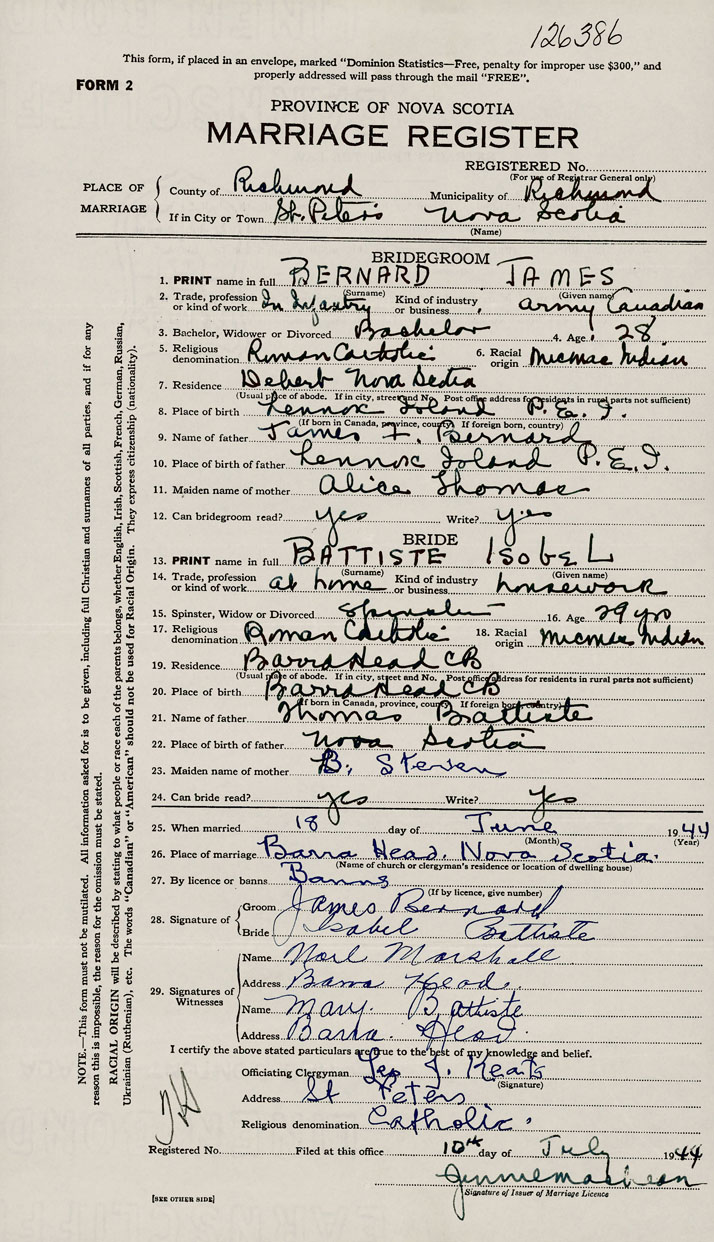 126386
This form, if placed in an envelope, marked "Dominion Statistics—Free, penalty for improper use $300," and
properly addressed will pass through the mail "FREE".
FORM 2
PROVINCE OF NOVA SCOTIA
MARRIAGE REGISTER
REGISTERED No.
(For use of Registrar General only)
PLACE OF MARRIAGE
County of Richmond Municipality of Richmond
If in City or Town St. Peter's Nova Scotia
(Name)
BRIDEGROOM
1. PRINT name in full BERNARD JAMES
(Surname) (Given name)
2. Trade, profession or kind of work In Infantry Kind of industry or business Army Canadian
3. Bachelor, Widower or Divorced Bachelor 4. Age 28
5. Religious denomination Roman Catholic 6. Racial origin Micmac Indian
7. Residence Debert Nova Scotia
(Usual place of abode. If in city, street and No. Post office address for residents in rural parts not sufficient)
8. Place of birth Lennox Island P.E.I.
(If born in Canada, province, county. If foreign born, country)
9. Name of father James F. Bernard
10. Place of birth of father Lennox Island P.E.I.
11. Maiden name of mother Alice Thomas
12. Can bridegroom read? yes Write? yes
BRIDE
13. PRINT name in full BATTISTE ISOBEL
(Surname) (Given name)
14. Trade, profession or kind of work at home Kind of industry or business housework
15. Spinster, Widow or Divorced Spinster 16. Age 29 yrs
17. Religious denomination Roman Catholic 18. Racial origin Micmac Indian
19. Residence Barra Head CB
(Usual place of abode. If in city, street and No. Post office address for residents in rural parts not sufficient)
20. Place of birth Barra Head CB
(If born in Canada, province, county. If foreign born, country)
21. Name of father Thomas Battiste
22. Place of birth of father Nova Scotia
23. Maiden name of mother B. Steven
24. Can bride read? yes Write? yes
25. When married 18 day of June 1944
(Month) (Year)
26. Place of marriage Barra Head. Nova Scotia.
(Name of church or clergyman's residence or location of dwelling house)
27. By licence or banns Banns
(If by licence, give number)
28. Signature of Groom James Bernard
Bride Isabel Battiste
29. Signatures of Witnesses
Name Noel Marshall
Address Barra Head.
Name Mary Battiste
Address Barra Head.
I certify the above stated particulars are true to the best of my knowledge and belief.
Officiating Clergyman Leo J. Keats
(Signature)
Address St Peters
Religious denomination Catholic.
Registered No. Filed at this office 10th day of July 1944
Signature of Issuer of Marriage Licence
[SEE OTHER SIDE]
NOTE.—This form must not be mutilated. All information asked for is to be given, including full Christian and surnames of all parties, and if for any
reason this is impossible, the reason for the omission must be stated.
RACIAL ORIGIN will be described by stating to what people or race each of the parents belongs, whether English, Irish, Scottish, French, German, Russian,
Ukrainian (Ruthenian), etc. The words "Canadian" or "American" should not be used for Racial Origin. They express citizenship (nationality).